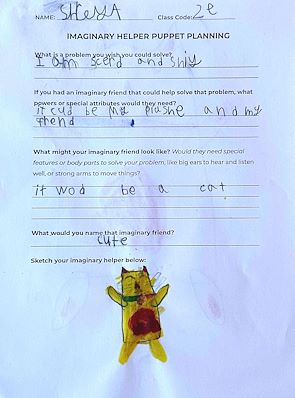 NAME: SHeSSA Class Code: 2e
IMAGINARY HELPER PUPPET PLANNING
What is a problem you wish you could solve?
I am scerd and shiy
If you had an imaginary friend that could help solve that problem, what
powers or special attributes would they need?
it cud be my plushe and my
frend
What might your imaginary friend look like? Would they need special
features or body parts to solve your problem, like big ears to hear and listen
well, or strong arms to move things?
it wod be a cat
What would you name that imaginary friend?
cute
Sketch your imaginary helper below: